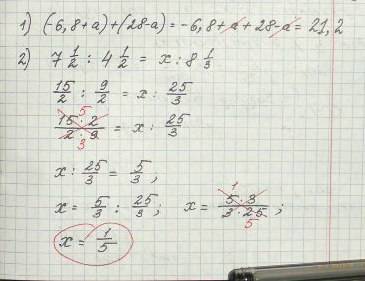 1) (-6,8+a)+(28-a)=-6,8+a+28-a=21,2
2) 7 1/2 : 4 1/2 = x : 8 1/3
15/2 : 9/2 = x : 25/3
5
15·2/2·9 = x : 25/3
3
x : 25/3 = 5/3;
x = 5/3 : 25/3; x = 5·3/3·25;
1
5
x = 1/5